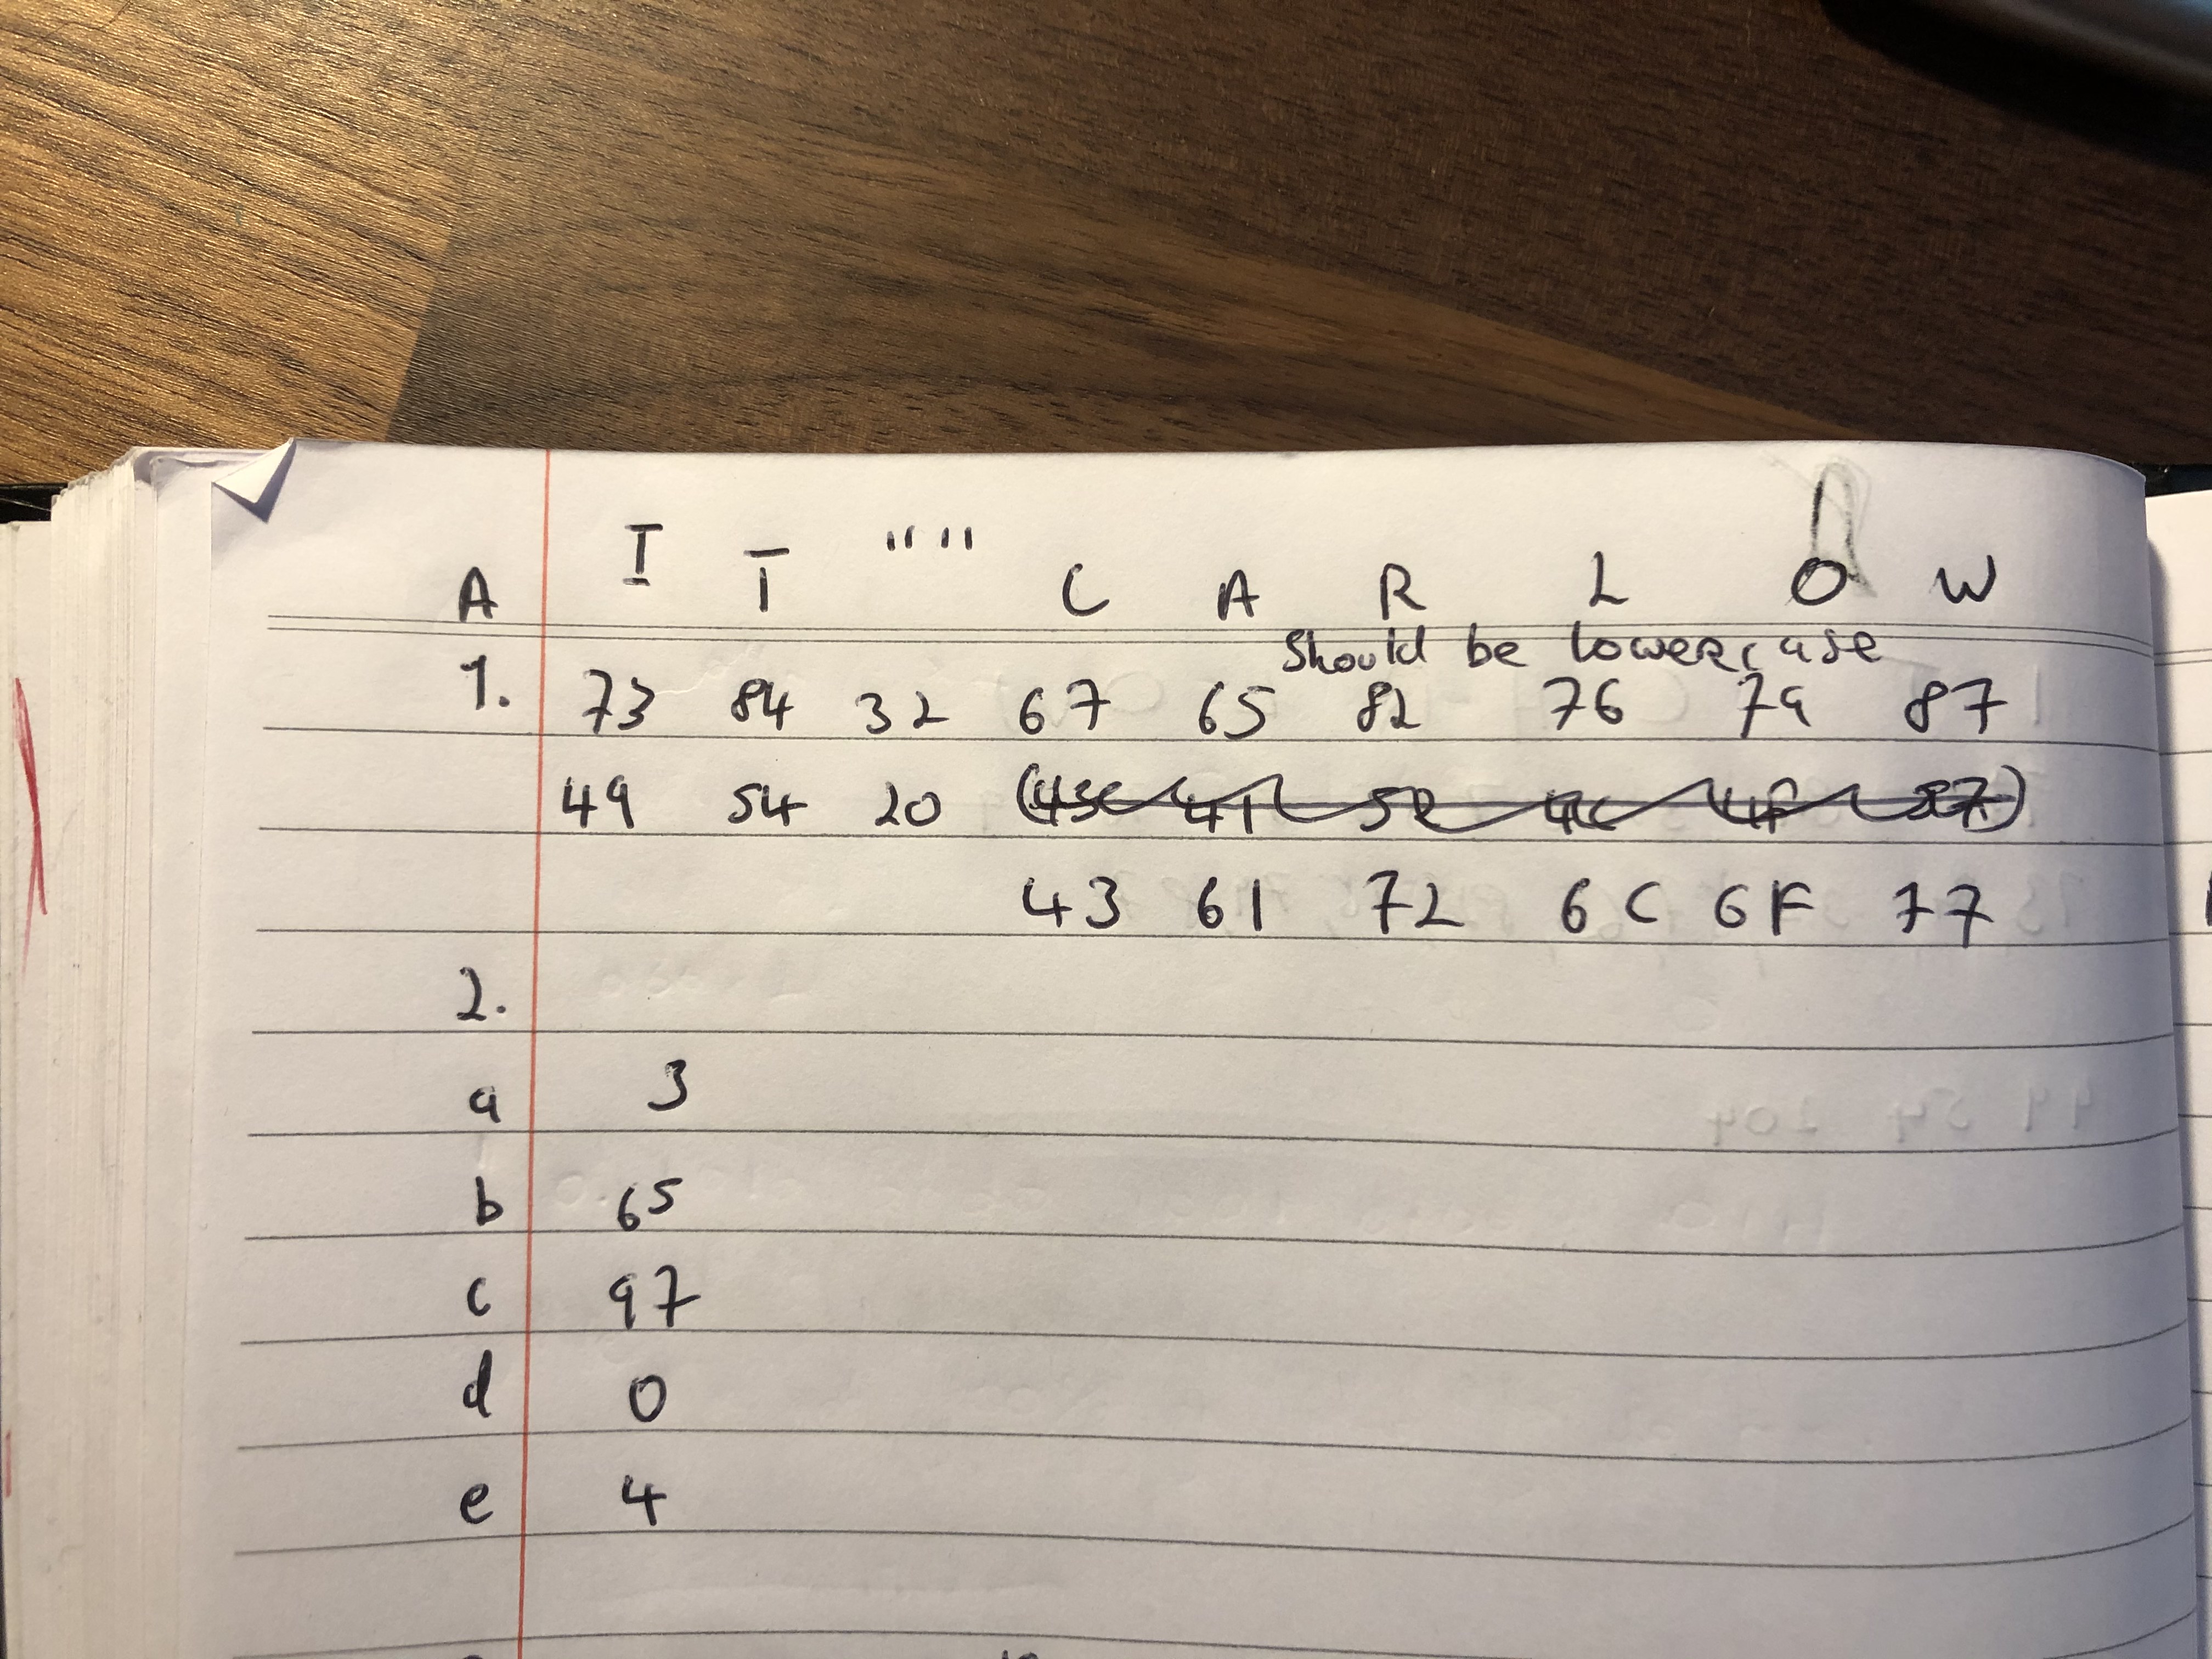 A I T "" C A R L O W
Should be lowercase
1. 73 84 32 67 65 82 76 79 87
49 54 20 (43 41 52 4C 4F 57)
43 61 72 6C 6F 77
2.
a 3
b 65
c 97
d 0
e 4